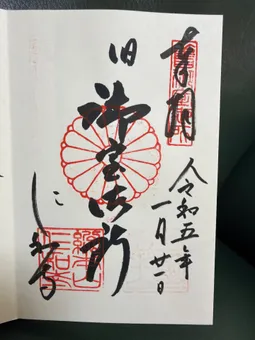 奉拝
令和五年
一月廿一日
旧
御室御所
仁和寺